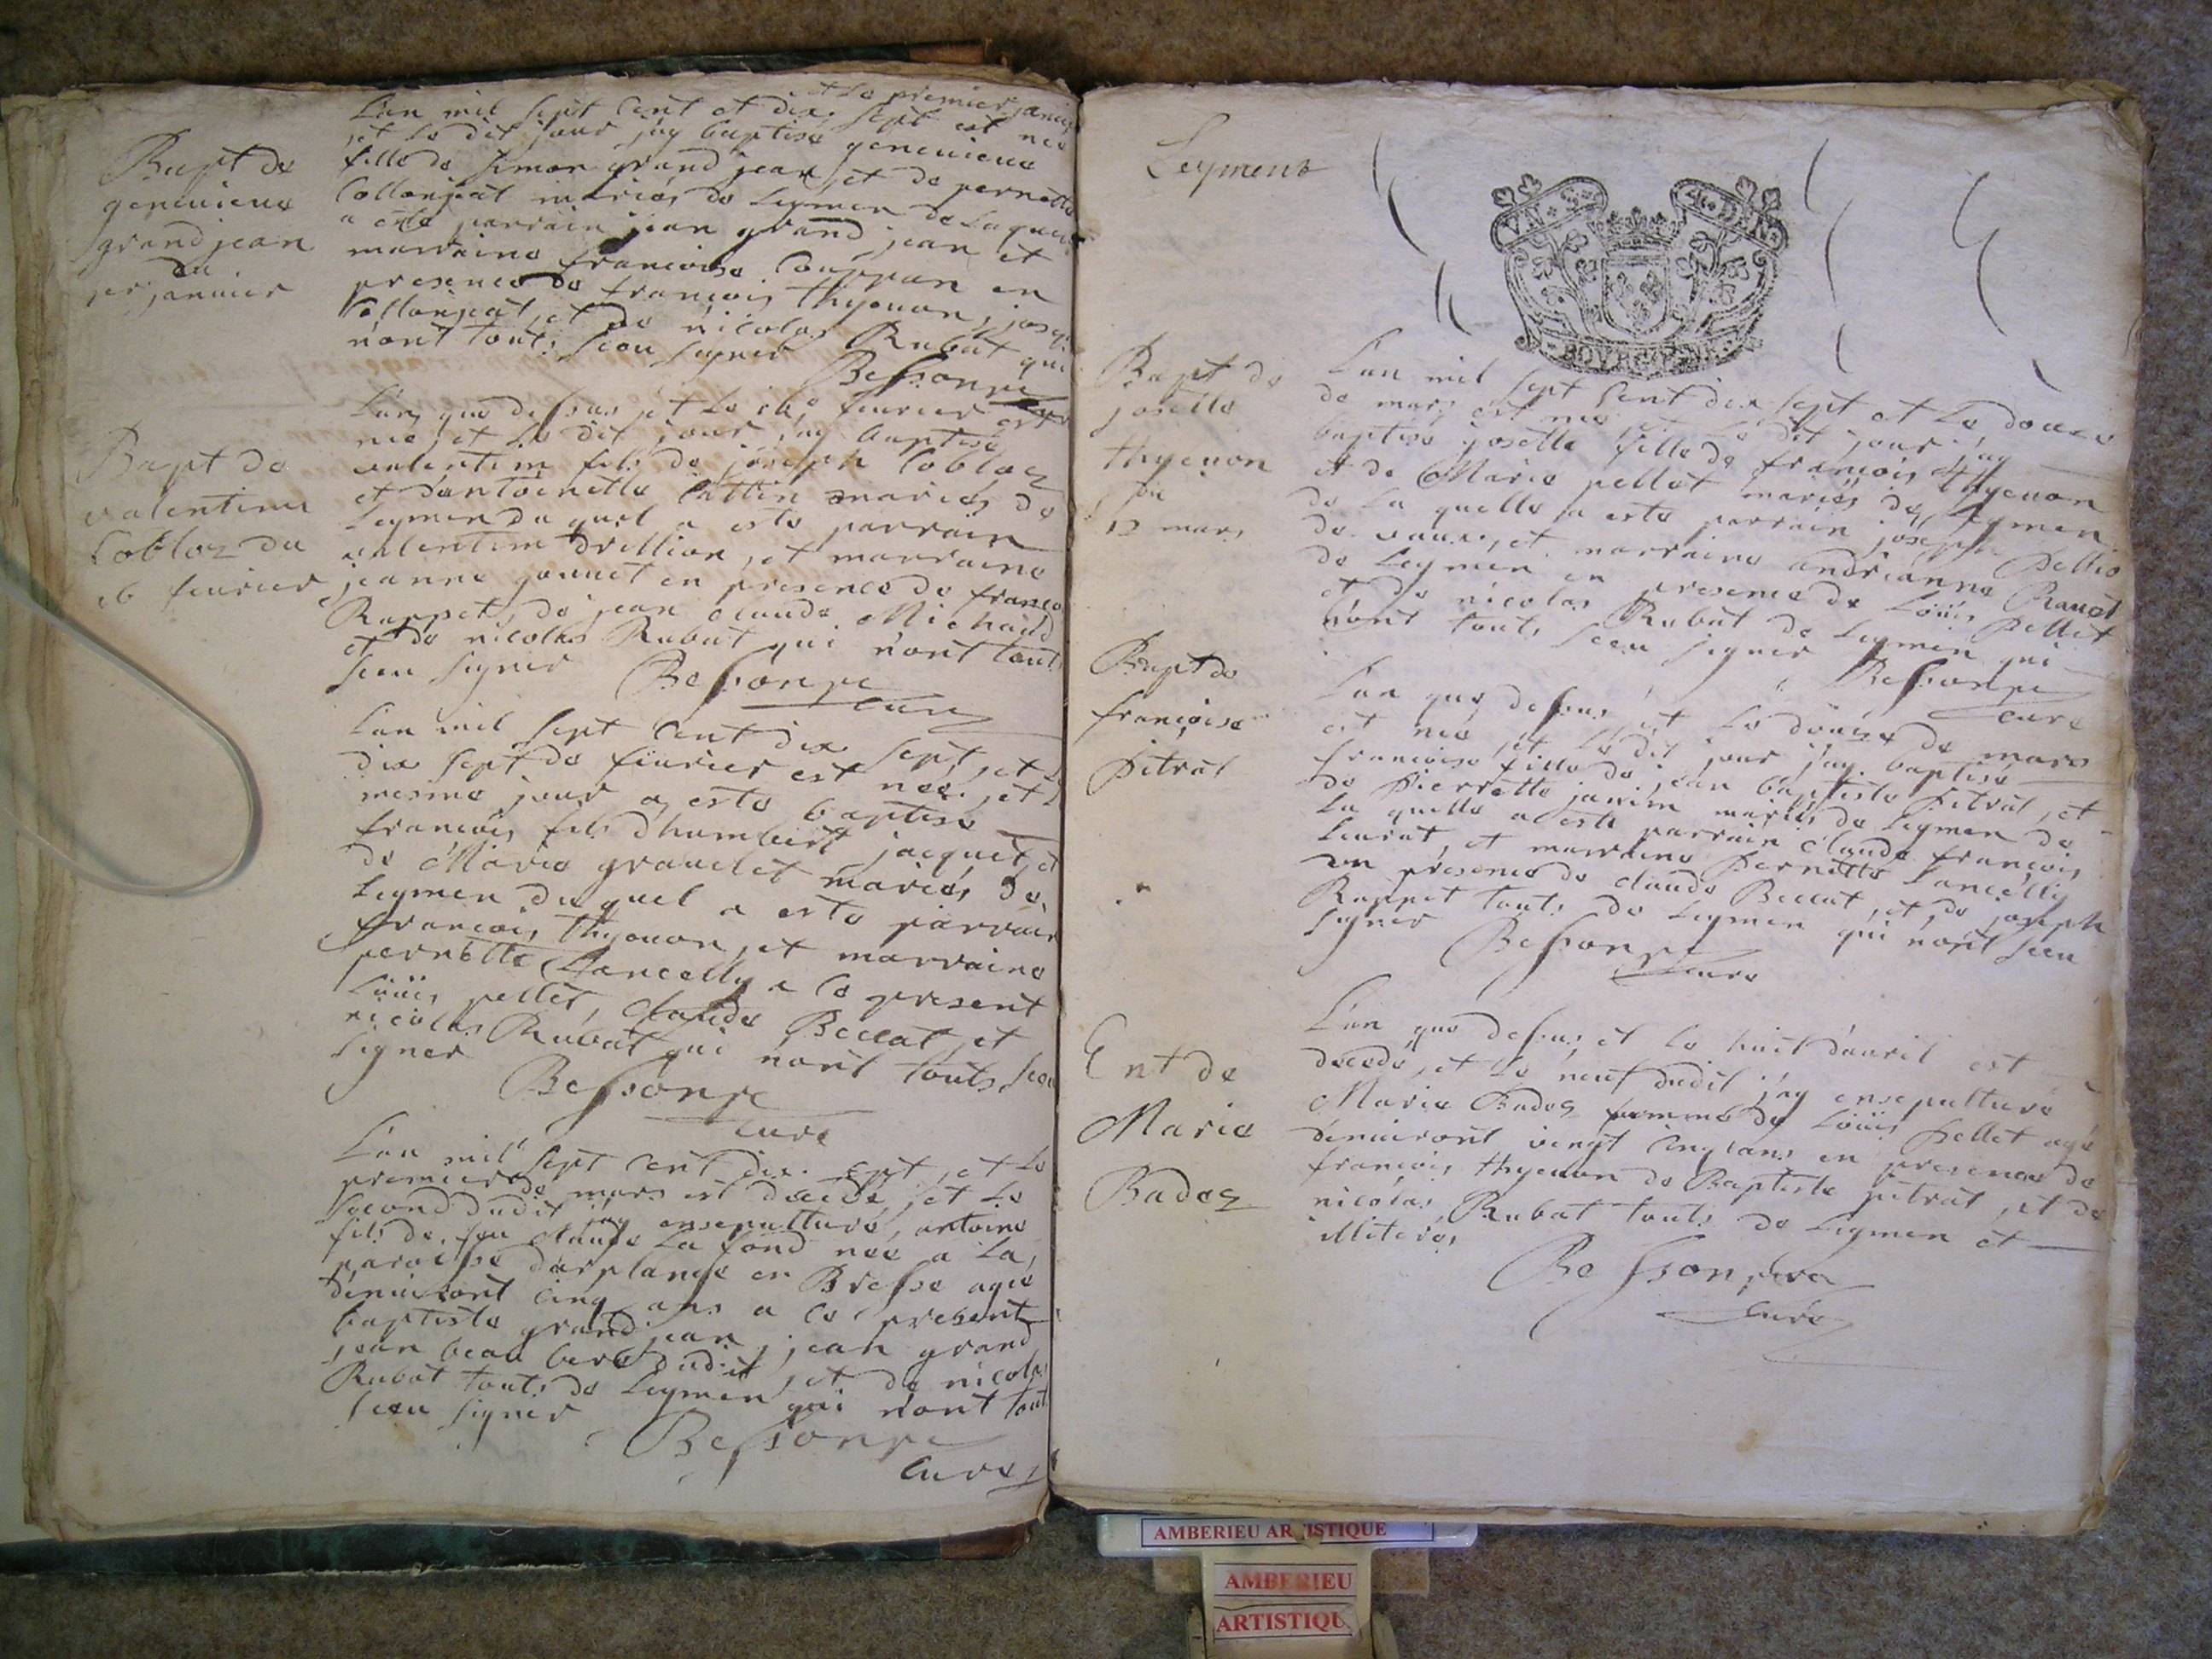 et le premier janvi
L'an mil sept cent et dix sept est nee
et le dit jour jay baptise genevieve
fille de simon grand jean et de pernette
Collonjeat mariés de Leymen de laquel
a esté parrain jean grand jean et
marraine francoise Couppan en
presence de francois thyevon, jos
Collonjeat, et de nicolas Rubat qui
n'ont touts sceu signer
Bessonne
Bapt de
genevieve
grand jean
du
per janvier
L'an que dessus et le 16e fevrier est
né, et le dit jour jay baptise
valentim fils de joseph Cobloz
et d'antoinette Cattin mariés de
Leymen duquel a esté parrain
valentim drillion, et marraine
jeanne gonnet en presence de franco
Rappet, de jean claude Michaud
et de nicolas Rubat qui n'ont tout
sceu signer Bessonne
curé
Bapt de
valentim
Cobloz du
16 fevrier
L'an mil sept cent dix sept, et l
dix sept de fevrier est née, et l
mesme jour a esté baptisé
francois fils d'humbert jacquet, et
de Marie gravelet mariés de
Leymen duquel a esté parrain
francois thyevon, et marraine
pernette Lancelly a ce present
Loüis pellet, claude Beccat, et
nicolas Rubat qui n'ont touts sceu
signer
Bessonne
curé
L'an mil sept cent dix sept, et le
premier de mars est decedé, et le
second dudit jay ensepulturé, antoine
fils de feu claude La fond née a la
paroisse darplange en Bresse agé
d'environt cinq ans a ce present
baptiste grand jean, jean grand
jean beau dudit, et de nicolas
Rubat touts de Leymen qui n'ont tout
sceu signer
Bessonne
curé
Leyment
BOURGOGNE
Bapt de
josette
thyevon
du
12 mars
L'an mil sept cent dix sept et le douze
de mars est née et le dit jour jay
baptisé josette fille de francois thyevon
et de Marie pellet mariés de Leymen
de la quelle a esté parrain joseph pellio
de vaux, et marraine andrianne Ravet
de Leymen en presence de Loüis pellet
et de nicolas Rubat de Leymen qui
n'ont touts sceu signer
Bessonne
curé
Bapt de
francoise
pitrat
L'an que dessus et le douze de mars
est née, et le dit jour jay baptisé
francoise fille de jean baptiste pitrat, et
de pierrette janim mariés de Leymen de
la quelle a esté parrain claude francois
Leurat, et marraine pernette Lancelly
en presence de claude Beccat, et de joseph
Rappet touts de Leymen qui n'ont sceu
signer
Bessonne
curé
Ent de
Marie
Badoz
L'an que dessus, et le huit d'avril est
decedé, et le neuf dudit jay ensepulturé
Marie Badoz femme de Loüis pellet agé
d'environt vingt cinq ans en presence de
francois thyevon de Baptiste pitrat, et de
nicolas Rubat touts de Leymen et
illiterés
Bessonne
curé
AMBERIEU ARTISTIQUE
AMBERIEU
ARTISTIQU